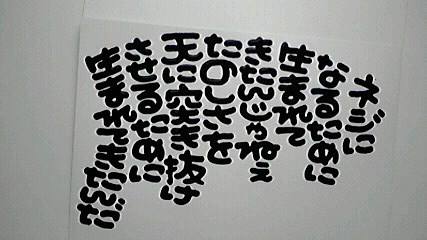 ネジに
なるために
生まれて
きたんじゃねぇ
たのしさを
天に突き抜け
させるために
生まれてきたんだ